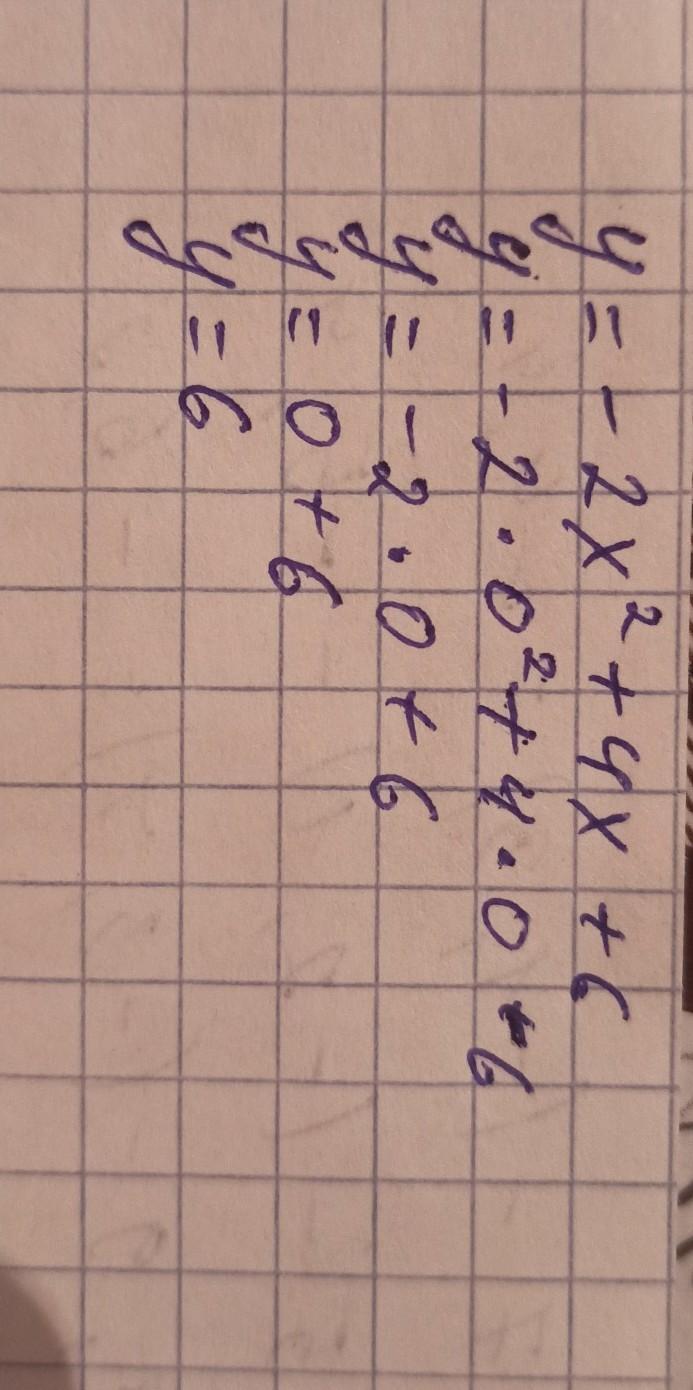 y = -2x² + 4x + 6
y = -2 · 0² + 4 · 0 + 6
y = -2 · 0 + 6
y = 0 + 6
y = 6